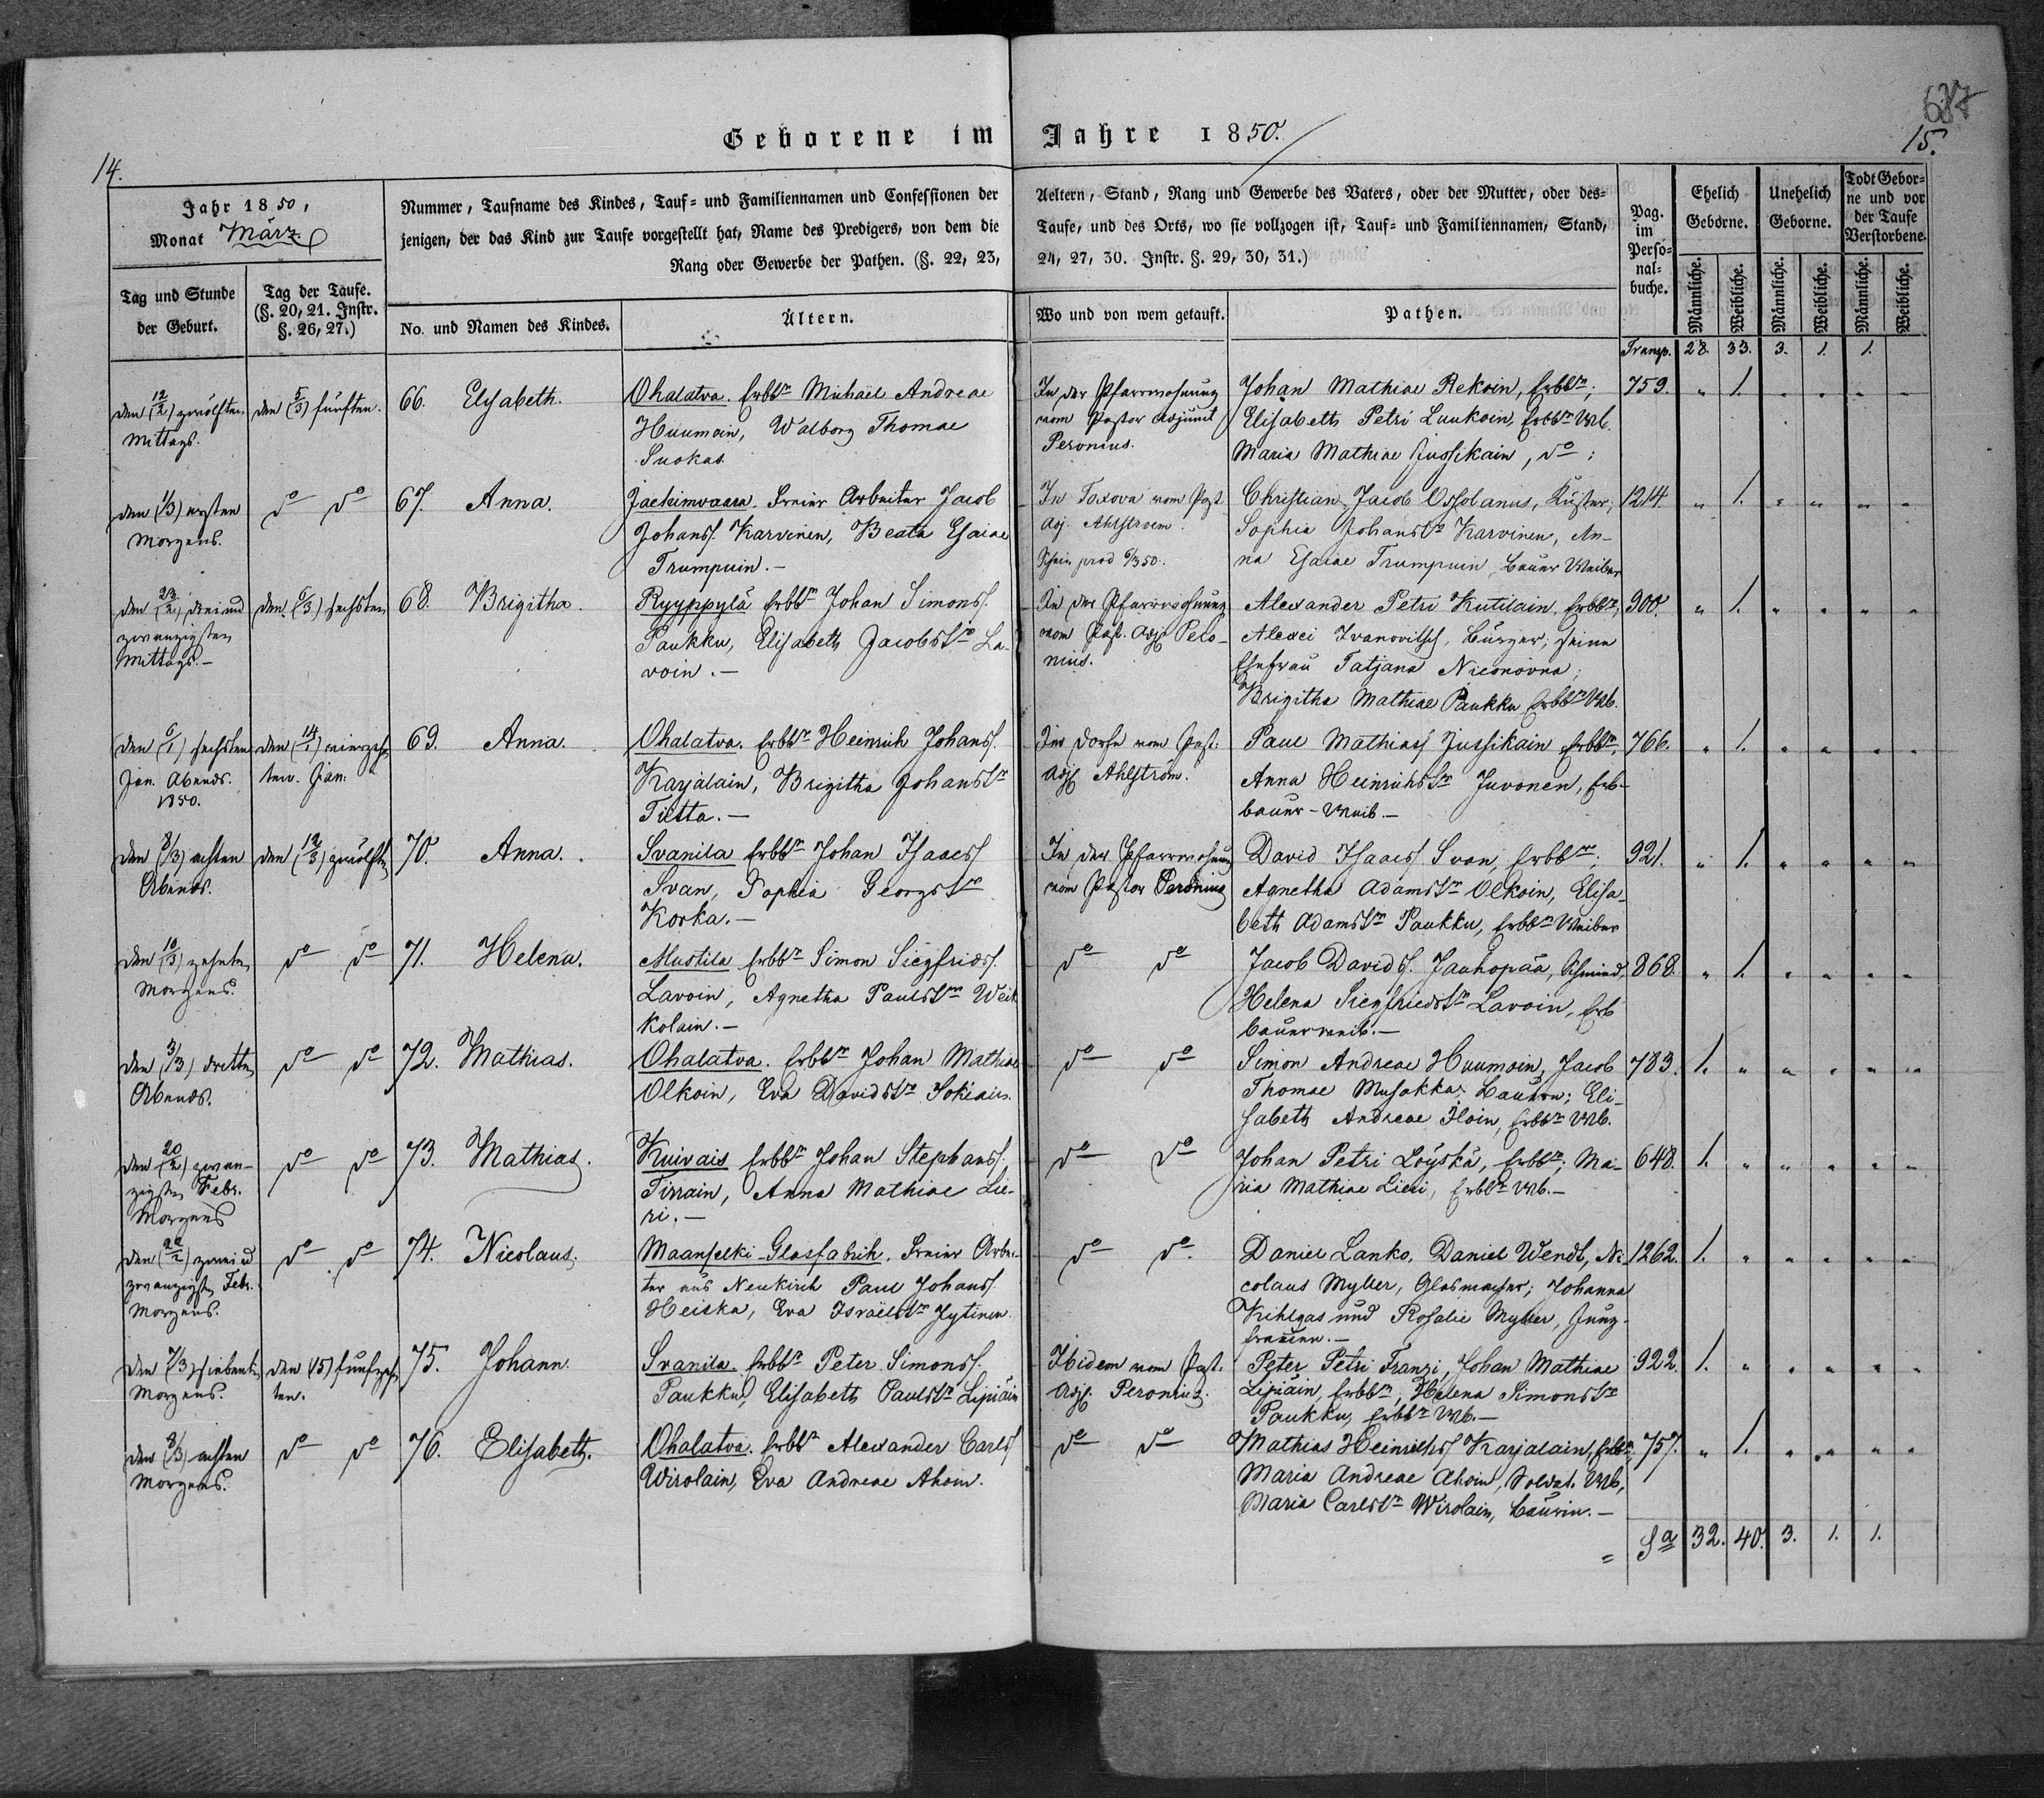 637
14.
15.
Geborene im Jahre 1850.
Jahr 1850,
Monat März
Nummer, Taufname des Kindes, Tauf- und Familiennamen und Confessionen der
jenigen, der das Kind zur Taufe vorgestellt hat, Name des Predigers, von dem die
Rang oder Gewerbe der Pathen. (§. 22, 23,
Aeltern, Stand, Rang und Gewerbe des Vaters, oder der Mutter, oder des-
Taufe, und des Orts, wo sie vollzogen ist, Tauf- und Familiennamen, Stand,
24, 27, 30. Instr. §. 29, 30, 31.)
Tag und Stunde
der Geburt.
Tag der Taufe.
(§. 20, 21. Instr.
§. 26, 27.)
No. und Namen des Kindes.
Ältern.
Wo und von wem getauft.
Pathen.
Pag.
im
Perso-
nal-
buche.
Ehelich
Geborne.
Unehelich
Geborne.
Todt Gebor-
ne und vor
der Taufe
Verstorbene.
Männliche.
Weibliche.
Männliche.
Weibliche.
Männliche.
Weibliche.
Transp. 28. 33. 3. 1. 1.
den (12/2) zwölften
Mittags.
den (5/3) fünften.
66. Elisabeth.
Ohalatva. Erbbr Michael Andreae
Huumoin, Walborg Thomae
Suokas.
In der Pfarrwohnung
vom Pastor Adjunct
Peronius.
Johan Mathiae Rekoin, Erbbr;
Elisabeth Petri Luukoin, Erbbr Wb.
Maria Mathiae Jussikain, do;
759. " 1. " " " "
den (1/3) ersten
Morgens.
do do
67. Anna.
Jachimvaara. Freier Arbeiter Jacob
Johanss. Karvinen, Beata Esaiae
Trumpuin.-
In Toxova vom Past.
Adj. Ahlstroem.
Christian Jacob Ossolanus, Küster;
Sophia Johanstr Karvinen, An-
na Esaiae Trumpuin, Bauer Weiber
1214. " 1. " " " "
den (23/2) dreiund
zwanzigsten
Mittags.-
den (6/3) sechsten
68. Brigitha.
Ryyppylä Erbbr Johan Simonss.
Paukku, Elisabeth Jacobstr La-
voin.-
In der Pfarrwohnung
vom Past. Adj. Pero-
nius.
Alexander Petri Kutilain, Erbbr;
Alexei Ivanovitsch, Bürger; seine
Ehefrau Tatjana Niconovna;
Brigitha Mathiae Paukku Erbbr Wb.
900. " 1. " " " "
den (6/1) sechsten
Jan. Abends.
1850.
den (14/1) vierzehn
ten Jan.
69. Anna.
Ohalatva. Erbbr Heinrich Johanss.
Karjalain, Brigitha Johanstr
Tutta.-
Im Dorfe vom Past.
Adj. Ahlström.
Paul Mathiass Jussikain Erbbr,
Anna Heinrichstr Juvonen, Erb-
bauer-Weib.-
766. " 1. " " " "
den (8/3) achten
Abends.
den (12/3) zwölften
70. Anna.
Svanila Erbbr Johan Isaacss
Svan, Sophia Georgstr
Korka.-
In der Pfarrwohnung
vom Pastor Peronius
David Isaacss Svan, Erbbr;
Agnetha Adamstr Olkoin, Elisa-
beth Adamstr Paukku, Erbbr Weiber
921. " 1. " " " "
den (10/3) zehnten
Morgens.
do do
71. Helena.
Mustila Erbbr Simon Siegfridss.
Lavoin, Agnetha Paulstr Weik
kolain.-
do do
Jacob Davids. Jauhopää, Schmied,
Helena Siegfriedstr Lavoin, Erb
bauerweib.-
868. " 1. " " " "
den (3/3) dritten
Abends.
do do
72. Mathias.
Ohalatva. Erbbr Johan Mathiae
Olkoin, Eva Davidstr Sokiain.
do do
Simon Andreae Huumoin, Jacob
Thomae Musakka, Bauern; Eli-
sabeth Andreae Iloin, Erbbr Wb.
783. 1. " " " " "
den (20/2) zwan-
zigsten Febr.
Morgens
do do
73. Mathias.
Kuivais Erbbr Johan Stephanss.
Tirrain, Anna Mathiae Lie-
ri.-
do do
Johan Petri Löyskä, Erbbr; Ma-
ria Mathiae Lieri, Erbbr Wb.-
648. 1. " " " " "
den (22/2) zwei u
zwanzigsten Febr.
Morgens.
do do
74. Nicolaus.
Maanselki-Glasfabrik. Freier Arbei-
ter aus Neukirch Paul Johanss.
Heiska, Eva Israelstr Jytinen.
do do
Daniel Lanko, Daniel Wendt, Ni-
colaus Myller, Glasmacher; Johanna
Kihlgas und Rosalie Myller, Jung-
frauen.-
1262. 1. " " " " "
den (7/3) siebenten
Morgens.
den (15) fünfzehn
ten.
75. Johann.
Svanila. Erbbr Peter Simonss.
Paukku, Elisabeth Paulstr Lipiäin
Ibidem vom Past.
Adj. Peronius.
Peter Petri Franzi, Johan Mathiae
Lipiäin, Erbbr; Helena Simonstr
Paukku, Erbbr Wb.-
922. 1. " " " " "
den (8/3) achten
Morgens.
do do
76. Elisabeth.
Ohalatva. Erbbr Alexander Carlss
Wirolain, Eva Andreae Ahoin.
do do
Mathias Heinrichss Karjalain, Erbbr;
Maria Andreae Ahoin, Soldat. Wb,
Maria Carlstr Wirolain, Bäurin.-
757. " 1. " " " "
= Sa 32. 40. 3. 1. 1.